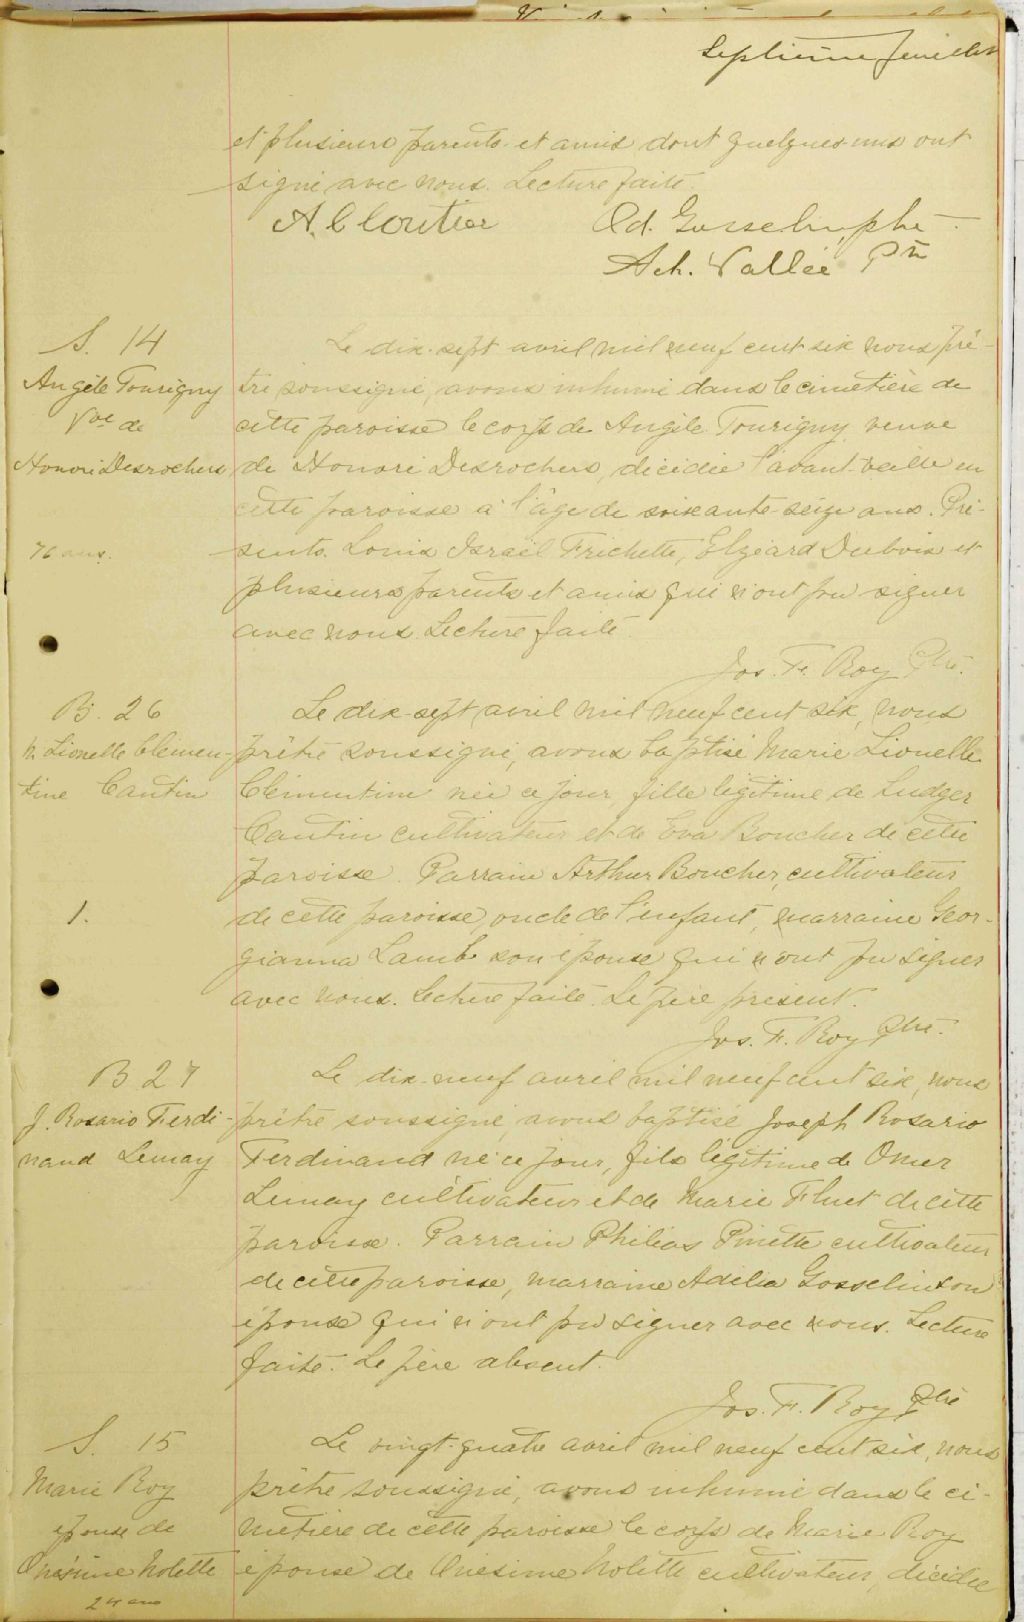 Septième feuillet
et plusieurs parents et amis dont quelques-uns ont
signé avec nous. Lecture faite.
A. Cloutier Od. Gosselin, ptre
Ach. Vallée Ptre
S. 14
Angèle Tourigny
Vve de
Honoré Desrochers
76 ans.
Le dix-sept avril mil neuf cent six nous prê-
tre soussigné, avons inhumé dans le cimetière de
cette paroisse le corps de Angèle Tourigny veuve
de Honoré Desrochers, décédée l'avant-veille en
cette paroisse à l'âge de soixante-seize ans. Pré-
sents Louis Israël Frichette, Elzéard Dubois et
plusieurs parents et amis qui n'ont pu signer
avec nous. Lecture faite.
Jos. F. Roy Ptre.
B. 26
M. Lionelle Clémen-
tine Cantin
1.
Le dix-sept avril mil neuf cent six, nous
prêtre soussigné, avons baptisé Marie Lionelle
Clémentine née ce jour, fille légitime de Ludger
Cantin cultivateur et de Eva Boucher de cette
paroisse. Parrain Arthur Boucher, cultivateur
de cette paroisse, oncle de l'enfant, marraine Geor-
gianna Lamb son épouse qui n'ont pu signer
avec nous. Lecture faite. Le père présent.
Jos. F. Roy Ptre.
B 27
J. Rosario Ferdi-
nand Lemay
Le dix-neuf avril mil neuf cent six, nous
prêtre soussigné, avons baptisé Joseph Rosario
Ferdinand né ce jour, fils légitime de Omer
Lemay cultivateur et de Marie Fluet de cette
paroisse. Parrain Philéas Pinette cultivateur
de cette paroisse, marraine Adélia Gosselin son
épouse qui n'ont pu signer avec nous. Lecture
faite. Le père absent.
Jos. F. Roy Ptre
S. 15
Marie Roy
épouse de
Onésime Nolette
24 ans
Le vingt-quatre avril mil neuf cent six, nous
prêtre soussigné, avons inhumé dans le ci-
metière de cette paroisse le corps de Marie Roy
épouse de Onésime Nolette cultivateur, décédée